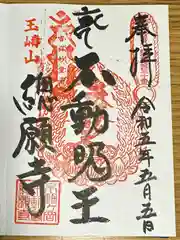 奉拝
令和五年五月五日
不動明王
玉嶹山
總願寺